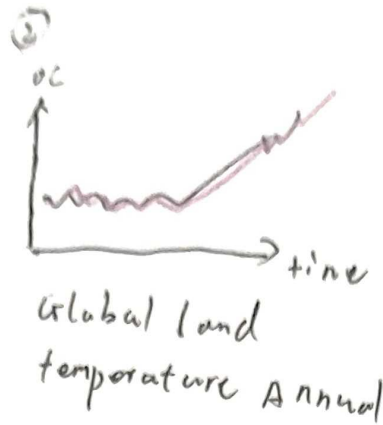 ②
°C
time
Global land
temperature Annual